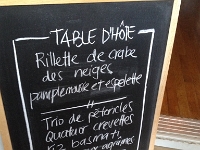 TABLE D'HÔTE
Rillette de crabe
des neiges
pamplemousse et espelette
//
Trio de pétoncles
Quatuor crevettes
Riz basmati
agrumes